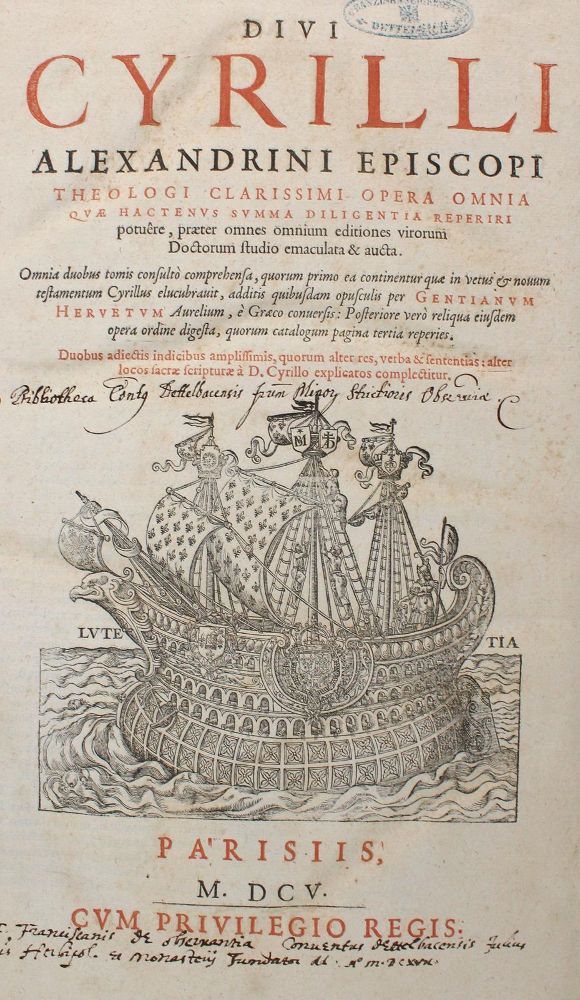 FRANZISKANER
DETTELBACH
DIVI
CYRILLI
ALEXANDRINI EPISCOPI
THEOLOGI CLARISSIMI OPERA OMNIA
QVÆ HACTENVS SVMMA DILIGENTIA REPERIRI
potuêre, præter omnes omnium editiones virorum
Doctorum studio emaculata & aucta.
Omnia duobus tomis consultò comprehensa, quorum primo ea continentur quæ in vetus & nouum
testamentum Cyrillus elucubrauit, additis quibusdam opusculis per GENTIANVM
HERVETVM Aurelium, è Græco conuersis: Posteriore verò reliqua eiusdem
opera ordine digesta, quorum catalogum pagina tertia reperies.
Duobus adiectis indicibus amplissimis, quorum alter res, verba & sententias: alter
locos sacræ scripturæ à D. Cyrillo explicatos complectitur.
Bibliotheca Dettelbacensis Minor Strictioris
LVTE TIA
PARISIIS,
M. DCV.
CVM PRIVILEGIO REGIS.
Franciscanis de obseruantia Conuentus dettelbacensis Julius
Herbipol. et Monasterij fundator